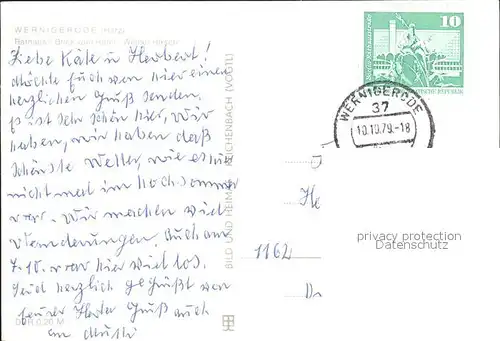 WERNIGERODE
Liebe Käte u Herbert!
Möchte Euch von hier einen
herzlichen Gruß senden.
Es ist sehr schön hier, wir
haben, wir haben das
schönste Wetter, wie es hier
nicht mal im Hochsommer
war. Wir machen viel
Wanderungen. Auch am
7.10. war hier viel los.
Seid herzlich gegrüßt von
Eurer Herta Gruß auch
an
DDR 0,20 M
BILD UND HEIMAT REICHENBACH (VOGTL)
10
WERNIGERODE
37
10.10.79.-18
1162
privacy protection
Datenschutz